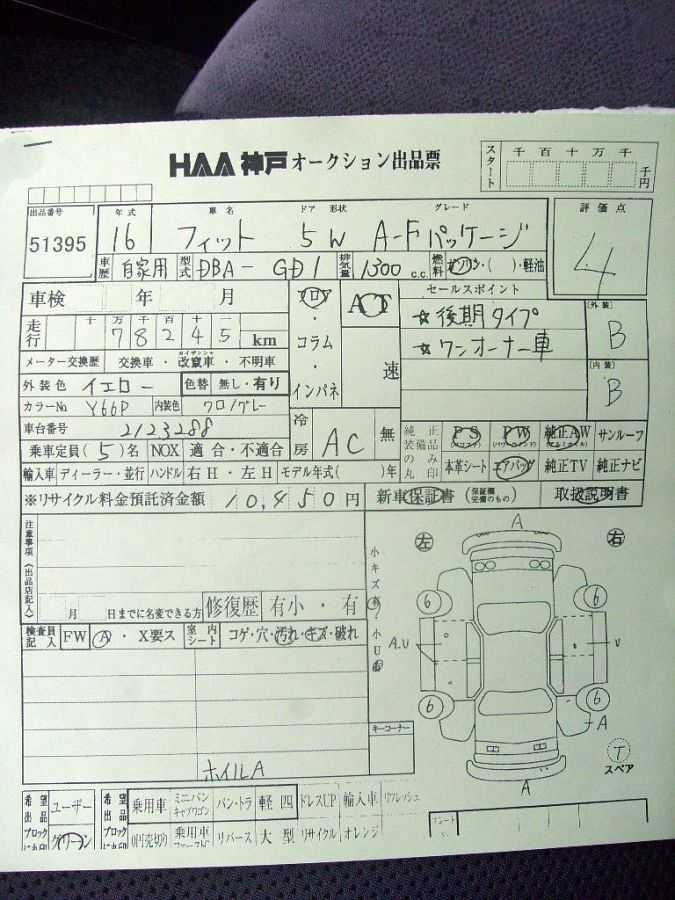 HAA神戸オークション出品票
スタート 千 百 十 万 千 千円
出品番号 年式 車名 ドア 形状 グレード 評価点
51395 16 フィット 5W A-Fパッケージ 4
車歴 自家用 型式 DBA-GD1 排気量 1300 c.c. 燃料 ガソリン・( )・軽油
車検 年 月 フロア AT セールスポイント
走行 十 万 千 百 十 78245 km コラム・ 速 ☆後期タイプ [外装] B
メーター交換歴 交換車・改竄車・不明車 インパネ ☆ワンオーナー車 [内装] B
外装色 イエロー 色替 無し・有り
カラーNo Y66P 内装色 クロ/グレー
車台番号 2123288 冷房 AC 無 純正装備品のみ丸印 PS PW 純正AW サンルーフ
乗車定員(5)名 NOX 適合・不適合 本革シート エアバッグ 純正TV 純正ナビ
輸入車 ディーラー・並行 ハンドル 右H・左H モデル年式( )年
※リサイクル料金預託済金額 10,450円 新車保証書 (保証欄完備のもの) 取扱説明書
注意事項(出品店記入) 小キズ 小U
左 A 右
6 6
A.U U
6 6
A
A
月 日までに名変できる方 修復歴 有小・有
検査員記入 FW A・X要ス 室内シート コゲ・穴・汚れ・キズ・破れ
キーコーナー
T
スペア
ホイルA
希望出品ブロック ユーザー 希望出品ブロック 乗用車 ミニバン キャブワゴン バン・トラ 軽四 ドレスUP 輸入車 リフレッシュ
グリーン 0円売切り 乗用車 リバース 大型 リサイクル オレンジ